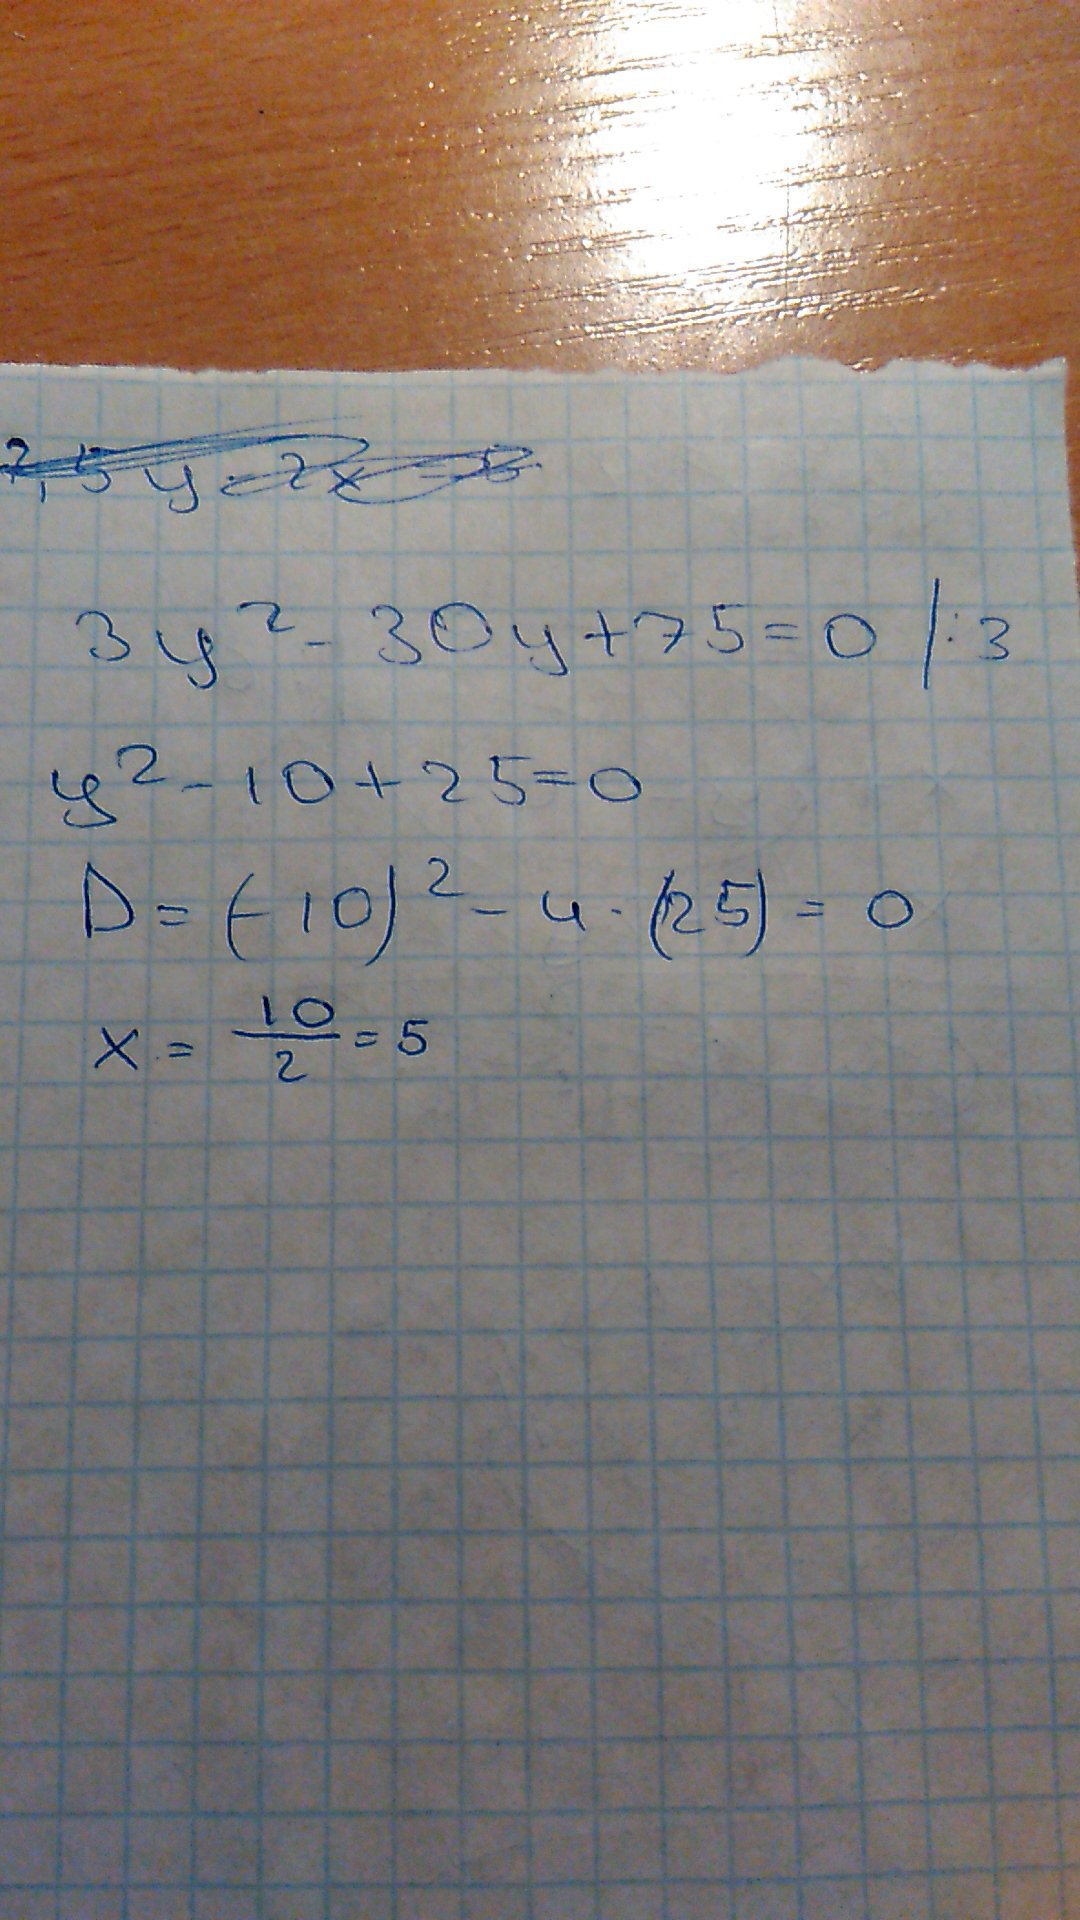 3y² - 30y + 75 = 0 | : 3
y² - 10 + 25 = 0
D = (-10)² - 4 · (25) = 0
x = 10/2 = 5